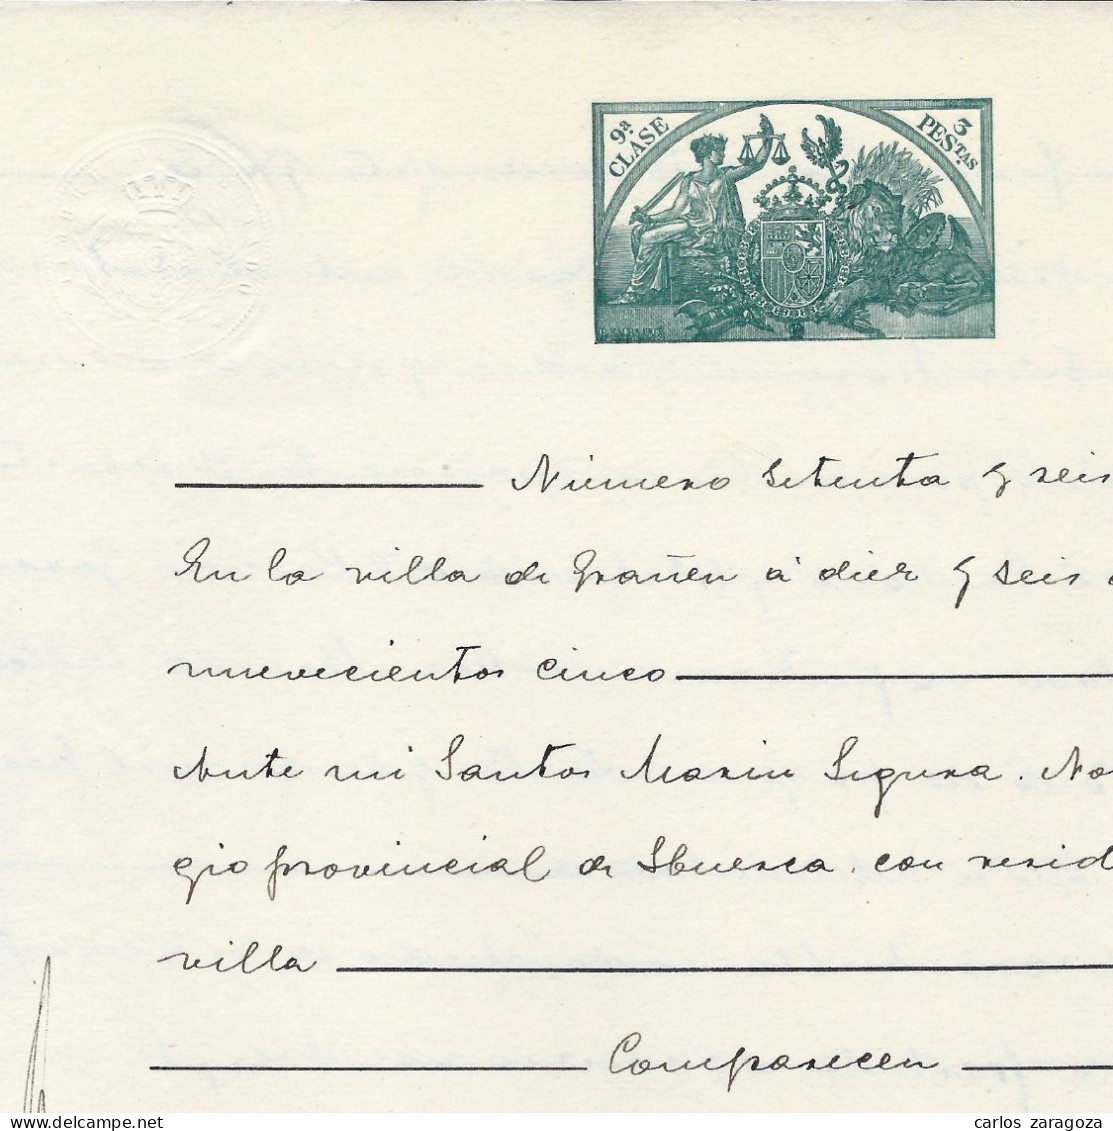 9ª CLASE
3 PESTAS
Número setenta y seis
En la villa de Grañén á diez y seis
nuevecientos cinco
Ante mi Santos Marin Segura. No
gio provincial de Huesca con resid
villa
Comparecen
carlos zaragoza